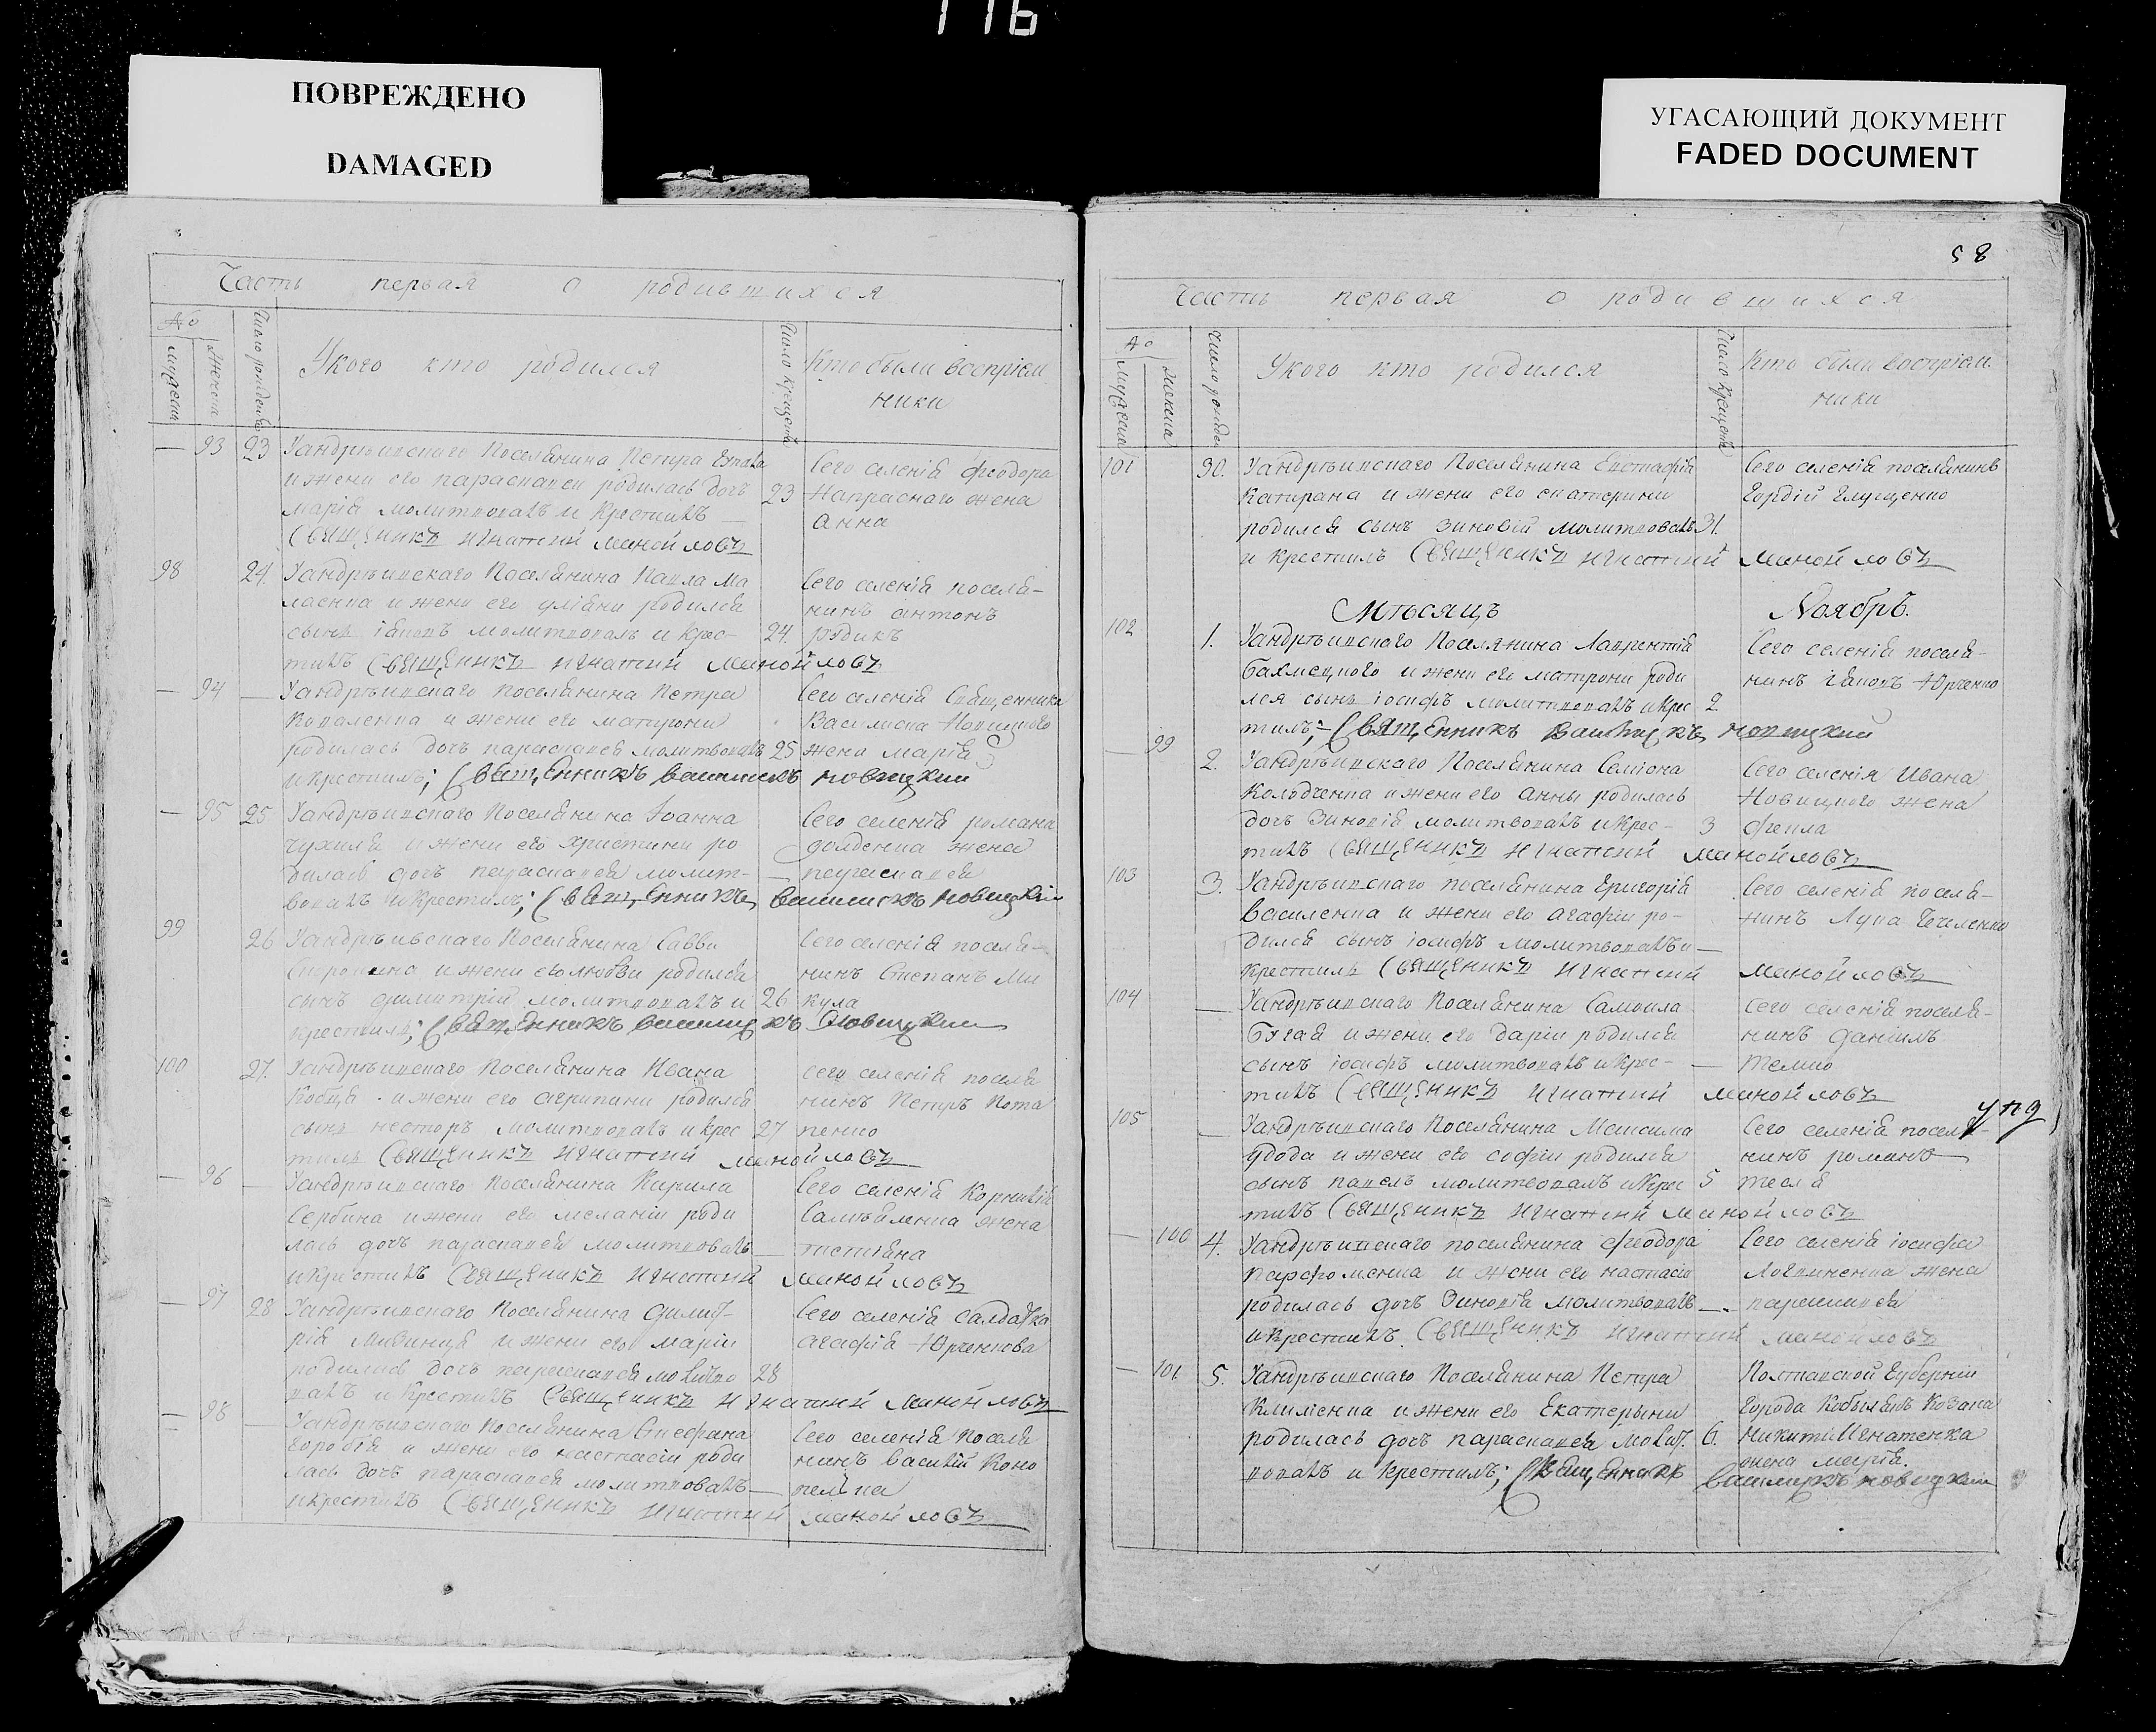 116
ПОВРЕЖДЕНО
DAMAGED
УГАСАЮЩИЙ ДОКУМЕНТ
FADED DOCUMENT
Часть первая о родившихся
No
Число рождения
Укого кто родился
Число крещения
Кто были воспріем
ники
— 93 23 Уандрѣивскаго Поселянина Петра
и жени его параскевеи родилась дочь 23
марія молитвовалъ и крестилъ —
Священикъ Игнатий Манойловъ
Сего селенія феодора
Напраснаго жена
анна
98 24. Уандрѣивскаго Поселянина Павла Ма
и жени его уліяни родился
сынъ іаковъ молитвовалъ и крес- 24.
тилъ Священикъ Игнатий Манойловъ
Сего селенія поселя-
нинъ антонъ
— 94 — Уандрѣивскаго поселянина Петра
Коваленка и жени его матрони
родилась дочь параскевея молитвовалъ 25
и крестилъ; Священникъ Новицкий
Сего селенія Священника
Новицкого
жена марія
— 95 25 Уандрѣивскаго Поселянина Іоанна
и жени его христини ро
дилась дочь параскевея молит- —
вовалъ и крестилъ; Священникъ Новицкий
Сего селенія романа
жена
параскевея
99 26 Уандрѣивскаго Поселянина Саввы
и жени его любви родился
сынъ димитрій молитвовалъ и 26
крестилъ; Священникъ Новицкий
Сего селенія поселя-
нинъ Степанъ Ми
кула
100 27. Уандрѣивскаго Поселянина Ивана
Кобца и жени его агрипини родился
сынъ несторъ молитвовалъ и крес 27
тилъ Священикъ Игнатий Манойловъ
Сего селенія поселя
нинъ Петръ Пота
пенко
— 96 — Уандрѣивскаго Поселянина Кирила
Сербина и жени его меланіи роди
лась дочь параскевея молитвовалъ —
и крестилъ Священикъ Игнатий Манойловъ
Сего селенія Корнилія
жена
— 97 28 Уандрѣивскаго Поселянина Димит-
рія и жени его маріи
родилась дочь параскевея молитво 28
валъ и крестилъ Священикъ Игнатий Манойловъ
Сего селенія салдатка
агафія Юрченкова
— 98 — Уандрѣивскаго Поселянина Стефана
и жени его настасіи роди
лась дочь параскевея молитвовалъ —
и крестилъ Священикъ Игнатий Манойловъ
Сего селенія поселя
нинъ василій
58
Часть первая о родившихся
No
Укого кто родился
Число крещенія
Кто были воспріем.
ники
101 30. Уандрѣивскаго Поселянина Евстафія
Катрана и жени его екатерини
родился сынъ зиновій молитвовалъ 31.
и крестилъ Священикъ Игнатий Манойловъ
Сего селенія поселянинъ
Гордій Глущенко
Мѣсяцъ Ноябрь.
102 1. Уандрѣивскаго Поселянина Лаврентія
Бахмецкого и жени его матрони роди
лся сынъ іосифъ молитвовалъ и крес 2
тилъ; — Священникъ Новицкий
Сего селенія поселя-
нинъ іаковъ Юрченко
— 99 2. Уандрѣивскаго Поселянина Семіона
Колодченка и жени его анны родилась
дочь Зиновія молитвовалъ и крес- 3
тилъ Священикъ Игнатий Манойловъ
Сего селенія Ивана
Новицкого жена
фекла
103 3. Уандрѣивскаго поселянина Григорія
василенка и жени его агафіи ро-
дился сынъ іосифъ молитвовалъ и —
крестилъ Священикъ Игнатий Манойловъ
Сего селенія поселя-
нинъ Лука
104 — Уандрѣивскаго Поселянина Самоила
Бугая и жени его даріи родился
сынъ іосифъ молитвовалъ и крес- —
тилъ Священикъ Игнатий Манойловъ
Сего селенія поселя-
нинъ даніилъ
темно
105 — Уандрѣивскаго Поселянина Максима
удода и жени его софіи родился
сынъ павелъ молитвовалъ и крес 5
тилъ Священикъ Игнатий Манойловъ
Сего селенія поселя-
нинъ романъ
тесля
— 100 4. Уандрѣивскаго поселянина феодора
парфоменка и жени его настасіи
родилась дочь Зиновія молитвовалъ —
и крестилъ Священикъ Игнатий Манойловъ
Сего селенія іосифа
Логвиненка жена
параскевея
— 101 5. Уандрѣивскаго Поселянина Петра
Клименка и жени его Екатерыни
родилась дочь параскевея молит. 6.
вовалъ и крестилъ; Священникъ Новицкий
Полтавской Губерніи
города Кобылякъ Козака
никити Игнатенка
жена марія.